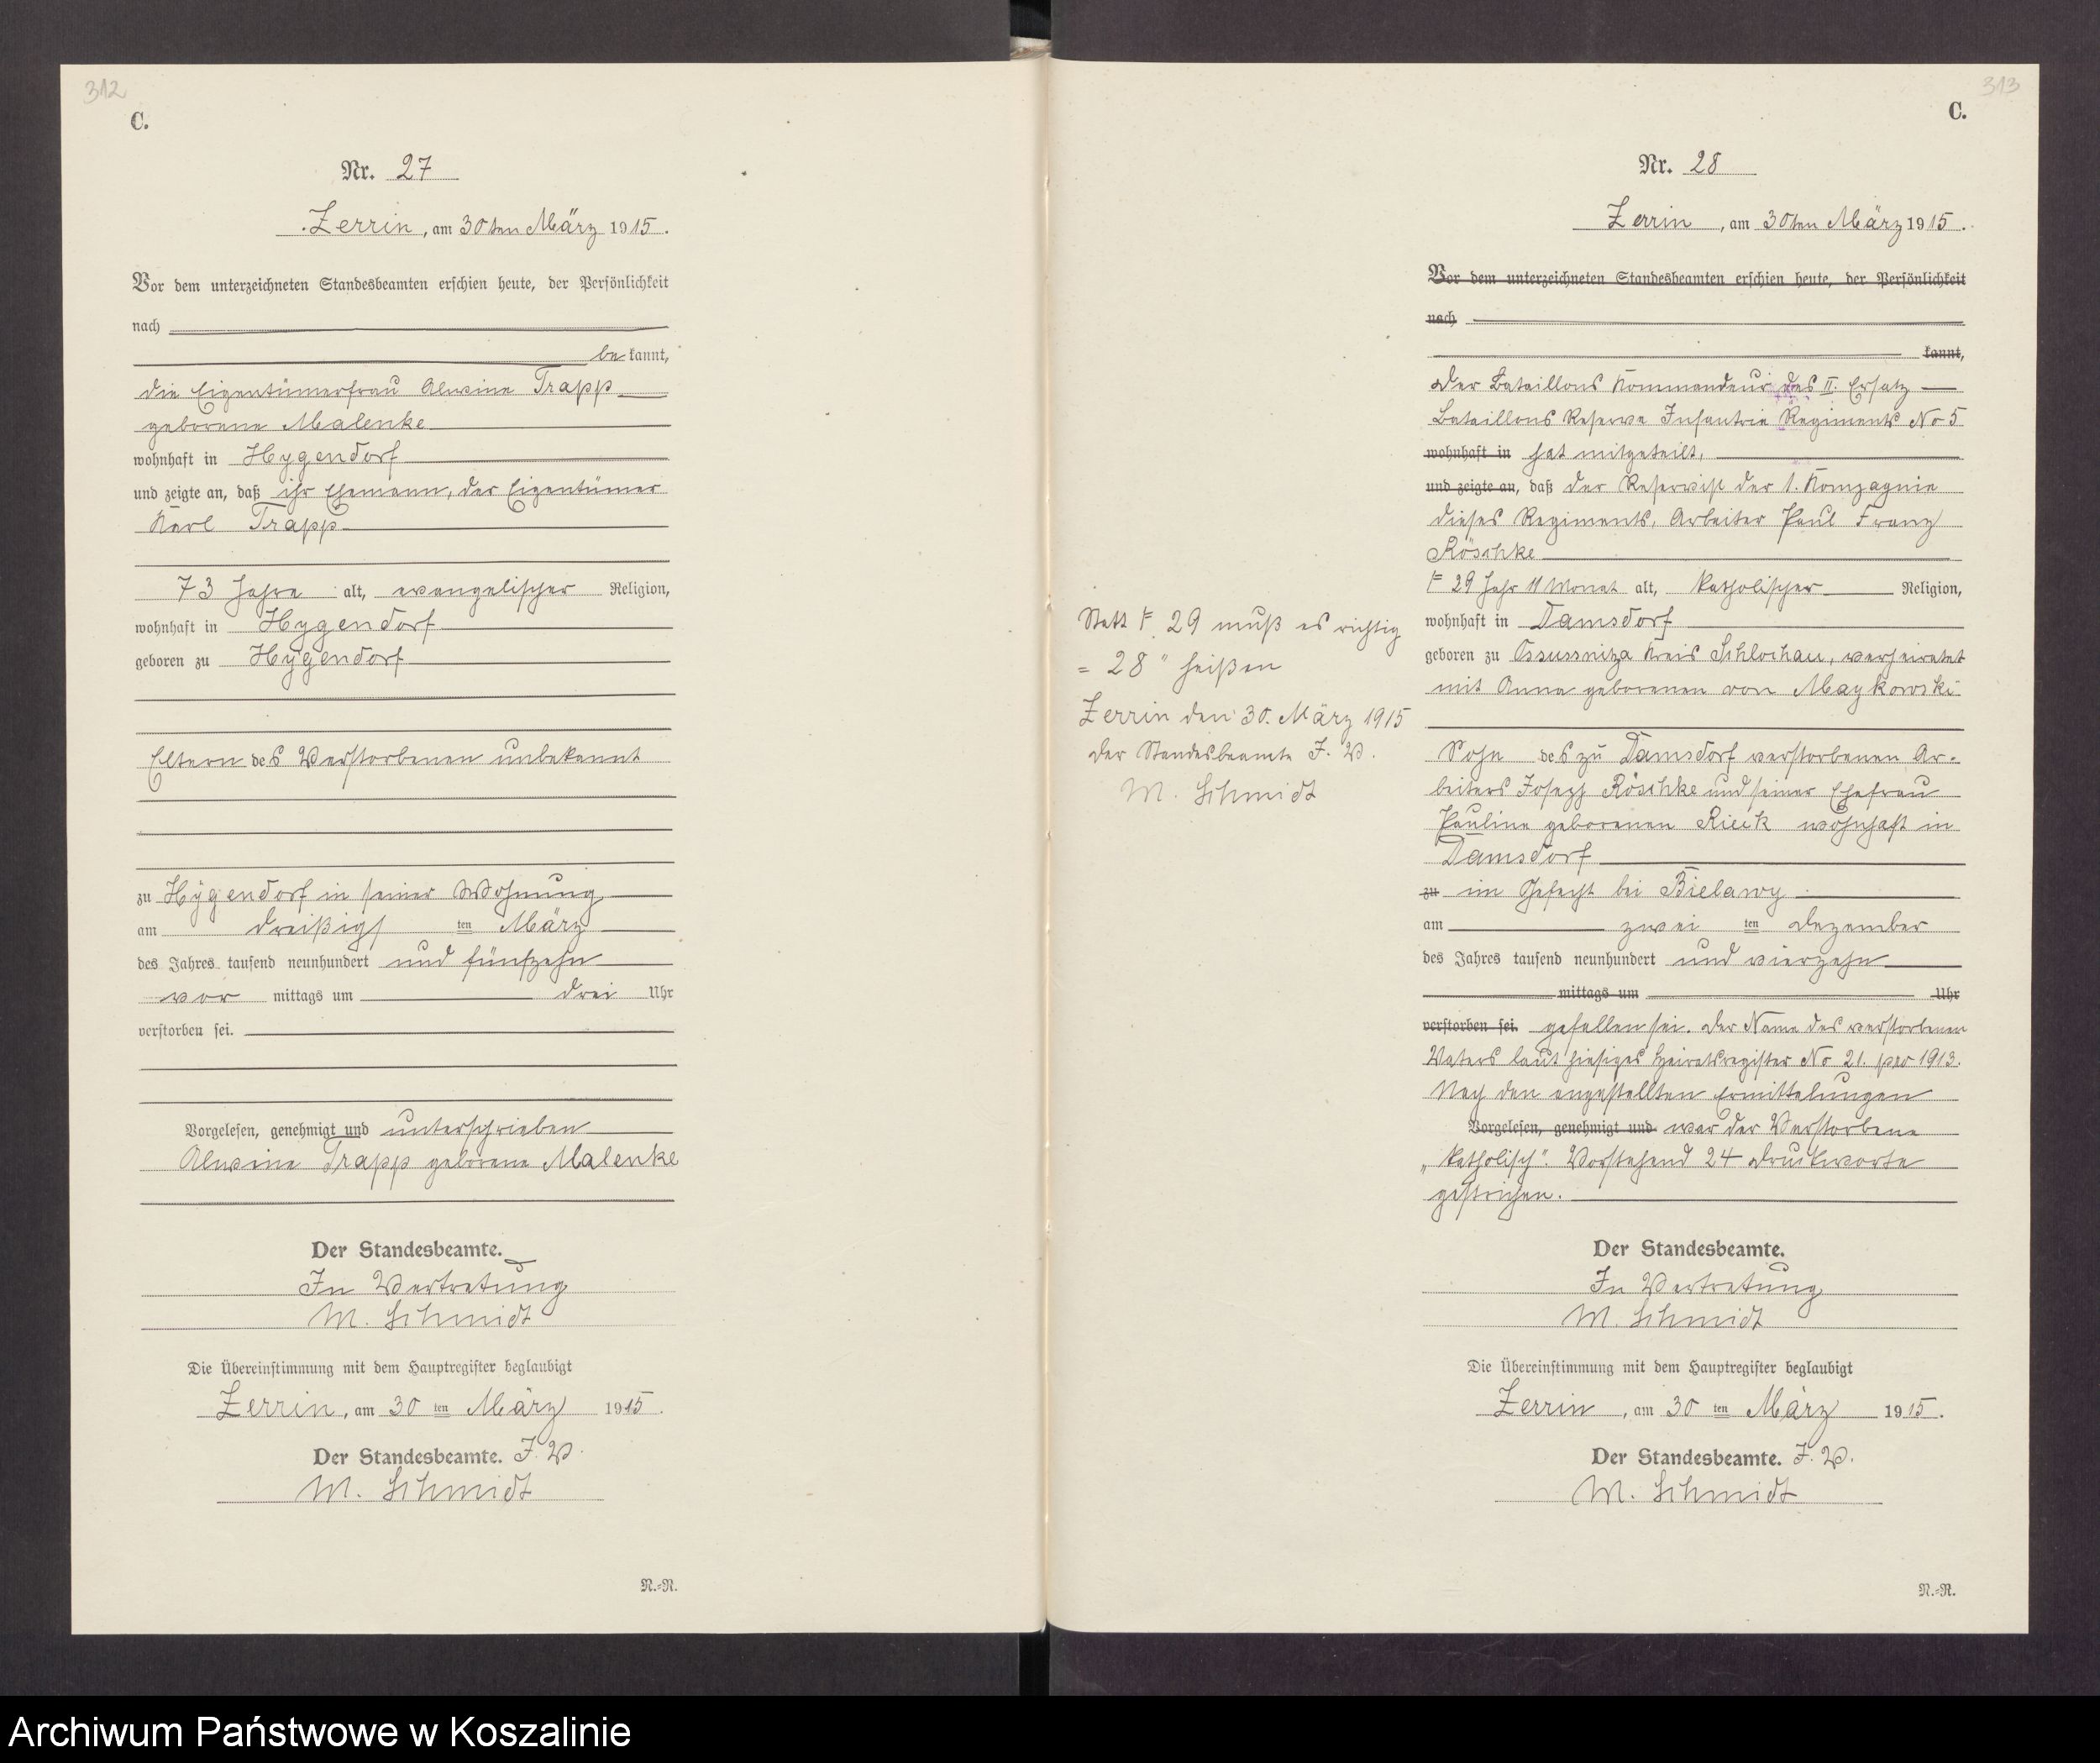 312
C.
Nr. 27
Zerrin, am 30ten März 1915.
Vor dem unterzeichneten Standesbeamten erschien heute, der Persönlichkeit
nach
be kannt,
die Eigentümerfrau Alwine Trapp
geborene Malenke
wohnhaft in Hygendorf
und zeigte an, daß ihr Ehemann, der Eigentümer
Karl Trapp
73 Jahre alt, evangelischer Religion,
wohnhaft in Hygendorf
geboren zu Hygendorf
Eltern des Verstorbenen unbekannt
zu Hygendorf in seiner Wohnung
am dreißigsten März
des Jahres tausend neunhundert und fünfzehn
vor mittags um drei Uhr
verstorben sei.
Vorgelesen, genehmigt und unterschrieben
Alwine Trapp geborene Malenke
Der Standesbeamte.
In Vertretung
M. Schmidt
Die Übereinstimmung mit dem Hauptregister beglaubigt
Zerrin, am 30 ten März 1915.
Der Standesbeamte. J. V.
M. Schmidt
N.-R.
313
C.
Nr. 28
Zerrin, am 30ten März 1915.
Vor dem unterzeichneten Standesbeamten erschien heute, der Persönlichkeit
nach
kannt,
Der Bataillons Kommandeur des II. Ersatz
Bataillons Reserve Infantrie Regiments No 5
wohnhaft in hat mitgeteilt,
und zeigte an, daß der Reservist der 1. Kompagnie
dieses Regiments, Arbeiter Paul Franz
Röschke
29 Jahr 11 Monat alt, katholischer Religion,
wohnhaft in Damsdorf
geboren zu Ossussnitza Kreis Schlochau, verheiratet
mit Anna geborenen von Maykowski
Sohn des zu Damsdorf verstorbenen Ar-
beiters Joseph Röschke und seiner Ehefrau
Pauline geborenen Rieck wohnhaft in
Damsdorf
zu im Gefecht bei Bielawy
am zwei ten Dezember
des Jahres tausend neunhundert und vierzehn
mittags um Uhr
verstorben sei. gefallen sei. Der Name des verstorbenen
Vaters laut hiesiges Heiratsregister No 21. pro 1913.
Nach den angestellten Ermittelungen
Vorgelesen, genehmigt und war der Verstorbene
„katholisch". Vorstehend 24 Druckworte
gestrichen.
Der Standesbeamte.
In Vertretung
M. Schmidt
Die Übereinstimmung mit dem Hauptregister beglaubigt
Zerrin, am 30 ten März 1915.
Der Standesbeamte. J. V.
M. Schmidt
N.-R.
Statt 29 muß es richtig
= 28 " heißen
Zerrin den 30. März 1915
Der Standesbeamte J. V.
M. Schmidt
Archiwum Państwowe w Koszalinie